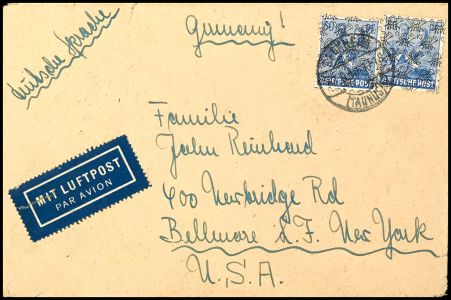 Germany!
deutsche Sprache
50
DEUTSCHE POST
DEUTSCHE POST
(TAUNUS)
MIT LUFTPOST
PAR AVION
Familie
John Reinhard
400 Newbridge Rd
Bellmore L.I. New York
U.S.A.